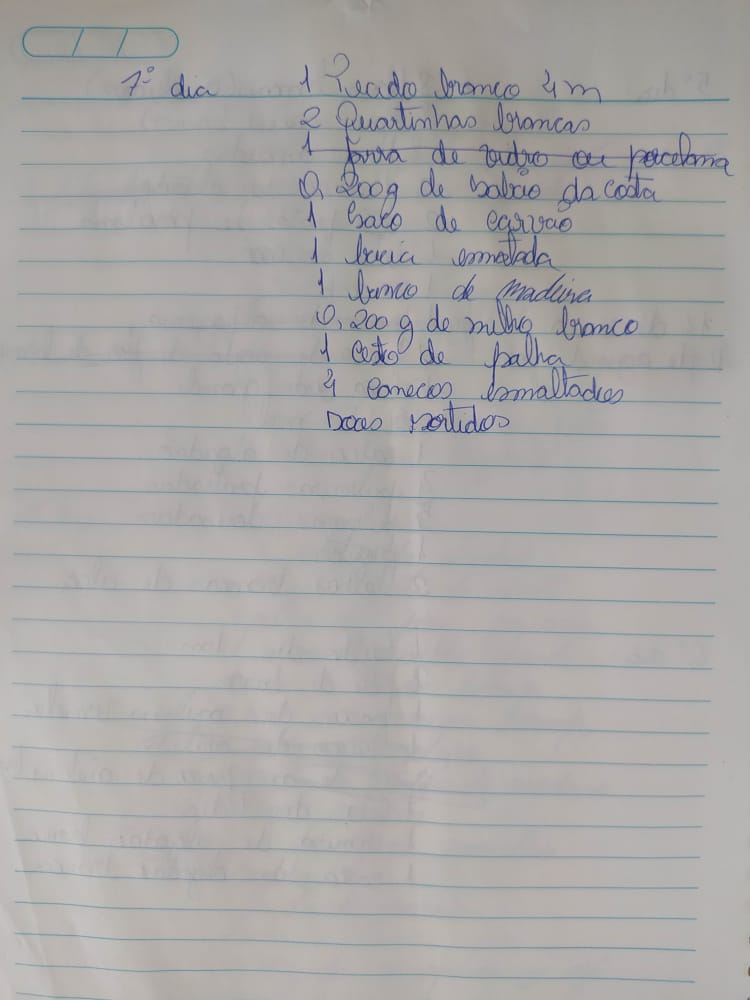 7º dia 1 Tecido branco 4m
2 Quartinhas brancas
1 jarra de vidro ou porcelana
0,200g de sabão da costa
1 saco de carvão
1 bacia esmaltada
1 banco de madeira
0,200g de milho branco
1 cesto de palha
4 canecos esmaltados
Doces sortidos